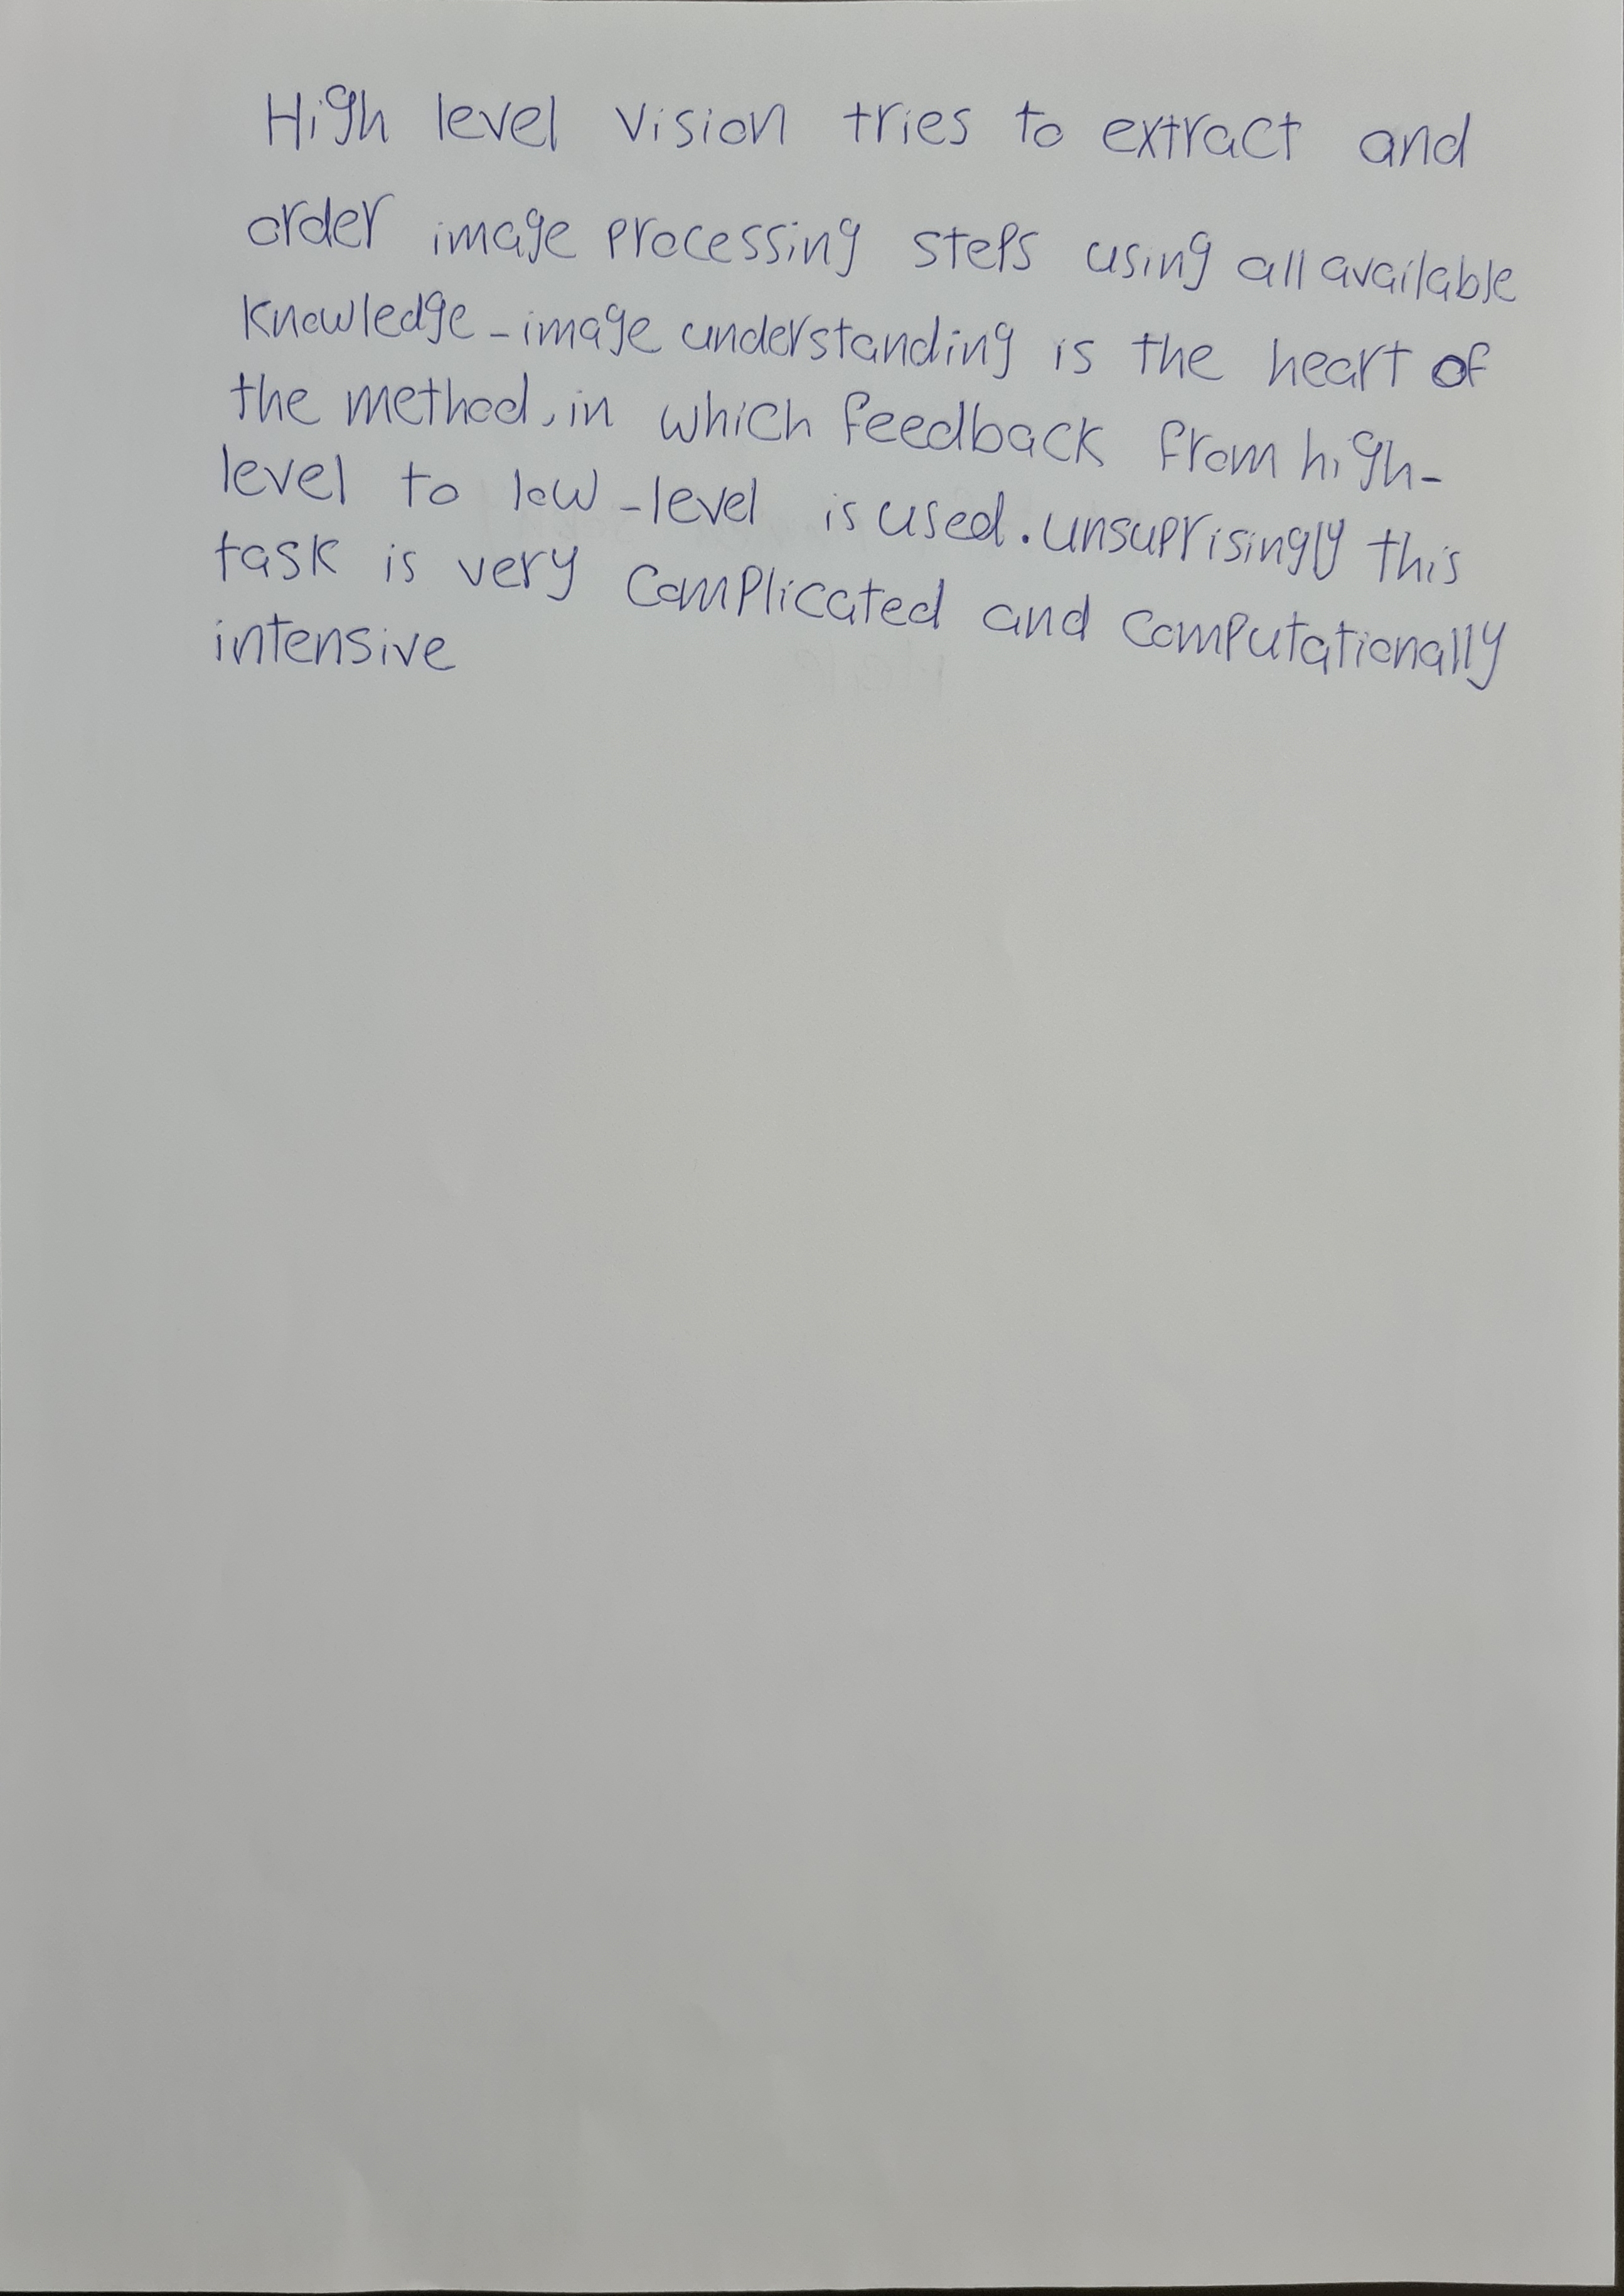 High level vision tries to extract and
order image processing steps using all available
knowledge - image understanding is the heart of
the method, in which feedback from high-
level to low - level is used. unsuprisingly this
task is very complicated and computationally
intensive